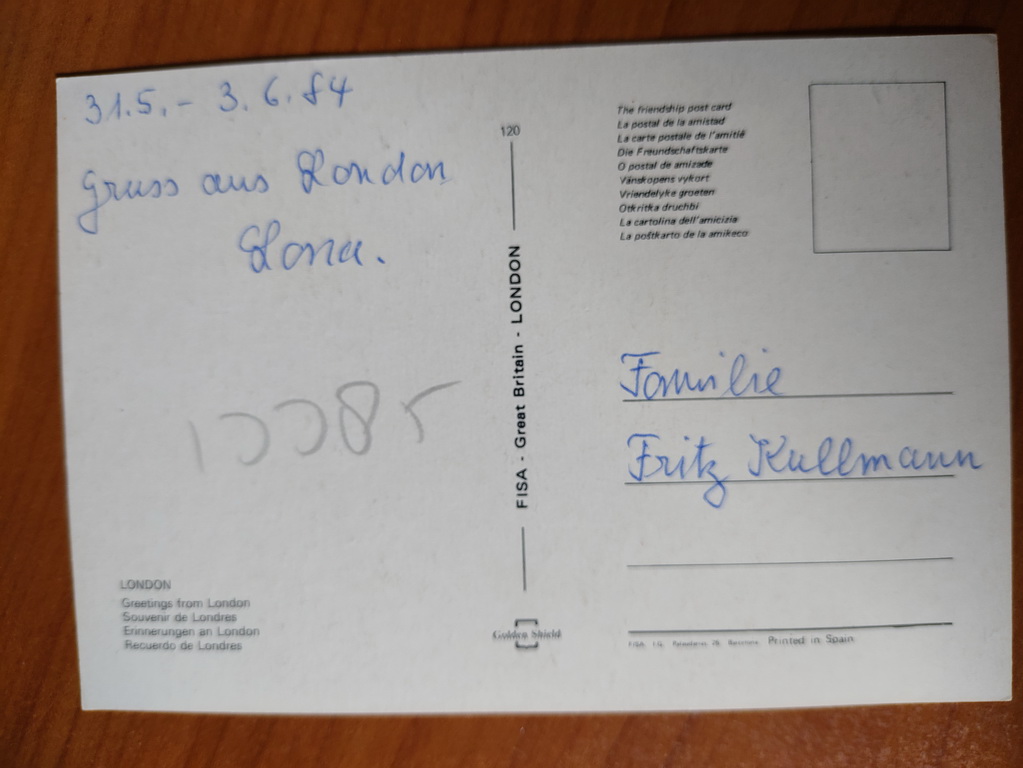 31.5.- 3.6.84
Gruss aus London
Lona.
120
FISA - Great Britain - LONDON
LONDON
Greetings from London
Souvenir de Londres
Erinnerungen an London
Recuerdo de Londres
Golden Shield
The friendship post card
La postal de la amistad
La carte postale de l'amitié
Die Freundschaftskarte
O postal de amizade
Vänskopens vykort
Vriendelyke groeten
Otkritka druchbi
La cartolina dell'amicizia
La poŝtkarto de la amikeco
Familie
Fritz Kullmann
Printed in Spain